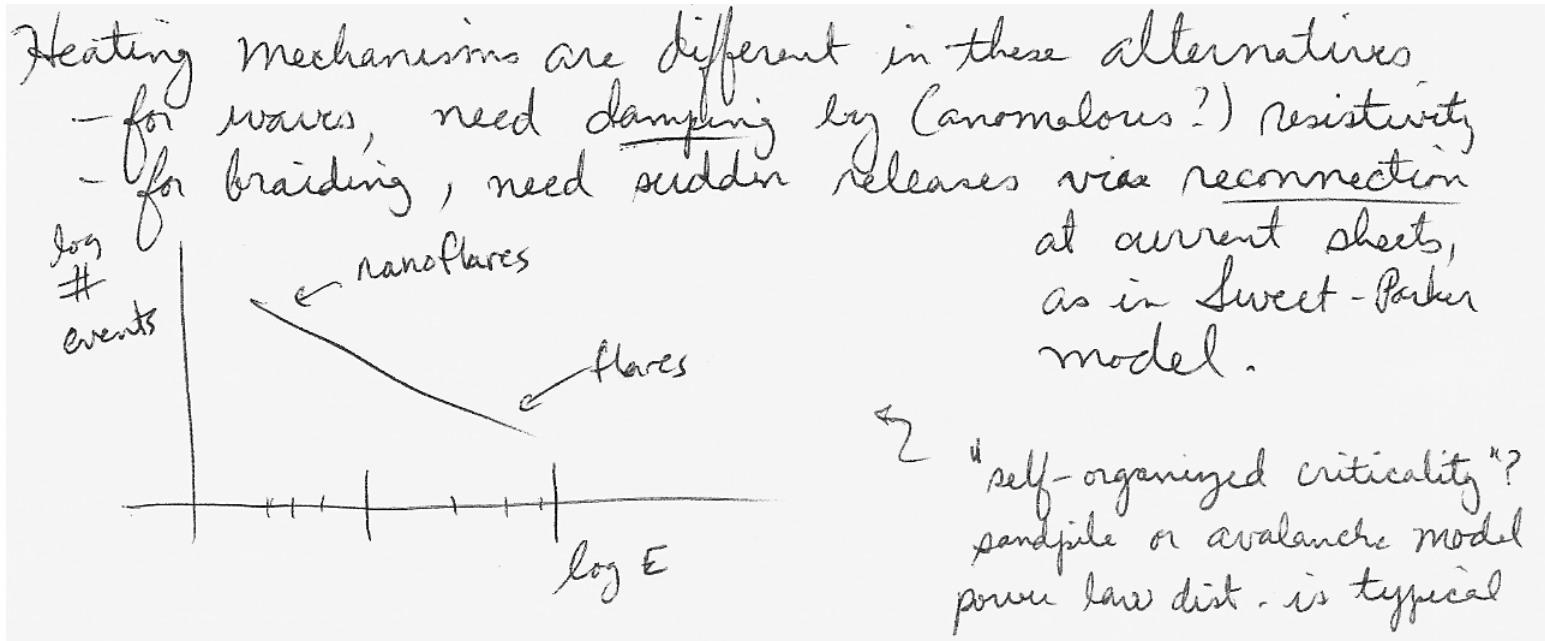 Heating mechanisms are different in these alternatives
- for waves, need damping by (anomalous?) resistivity
- for braiding, need sudden releases via reconnection
at current sheets,
as in Sweet-Parker
model.
log
#
events
nanoflares
flares
log E
"self-organized criticality"?
sandpile or avalanche model
power law dist. is typical